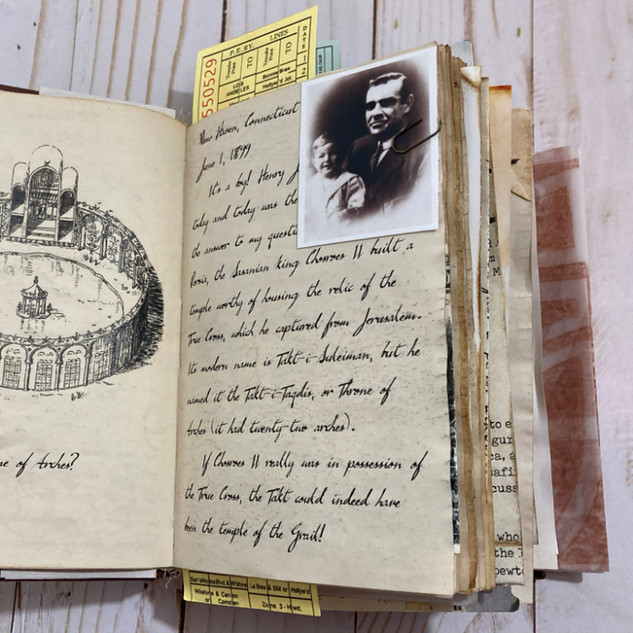 P.E. RY. LINES
TO
TO
DATE
LOS ANGELES
550529
Bonnie Brae
Hollyw'd Jct
New Haven, Connecticut
June 1, 1899
It's a boy! Henry J
today and today was the
the answer to my questi
Persia, the Sasanian king Chosroes II built a
temple worthy of housing the relic of the
True Cross, which he captured from Jerusalem.
Its modern name is Takt-i-Suleiman, but he
named it the Takt-i-Taqdis, or Throne of
Arches (it had twenty-two arches).
If Chosroes II really was in possession of
the True Cross, the Takt could indeed have
been the temple of the Grail!
e of Arches?
to e
gur
ca, a
safi
cuss
who
the
pewt
Wilshire & Carson
or
La Brea & SM or Hollyw'd
Zone 3 - Hwd.